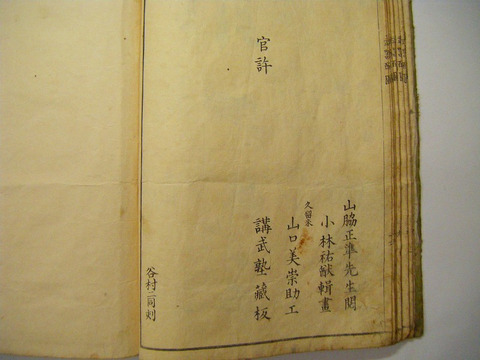 官許
山脇正準先生閲
小林祐猷輯畫
久留米
山口美崇助工
講武塾藏板
谷村一司刻